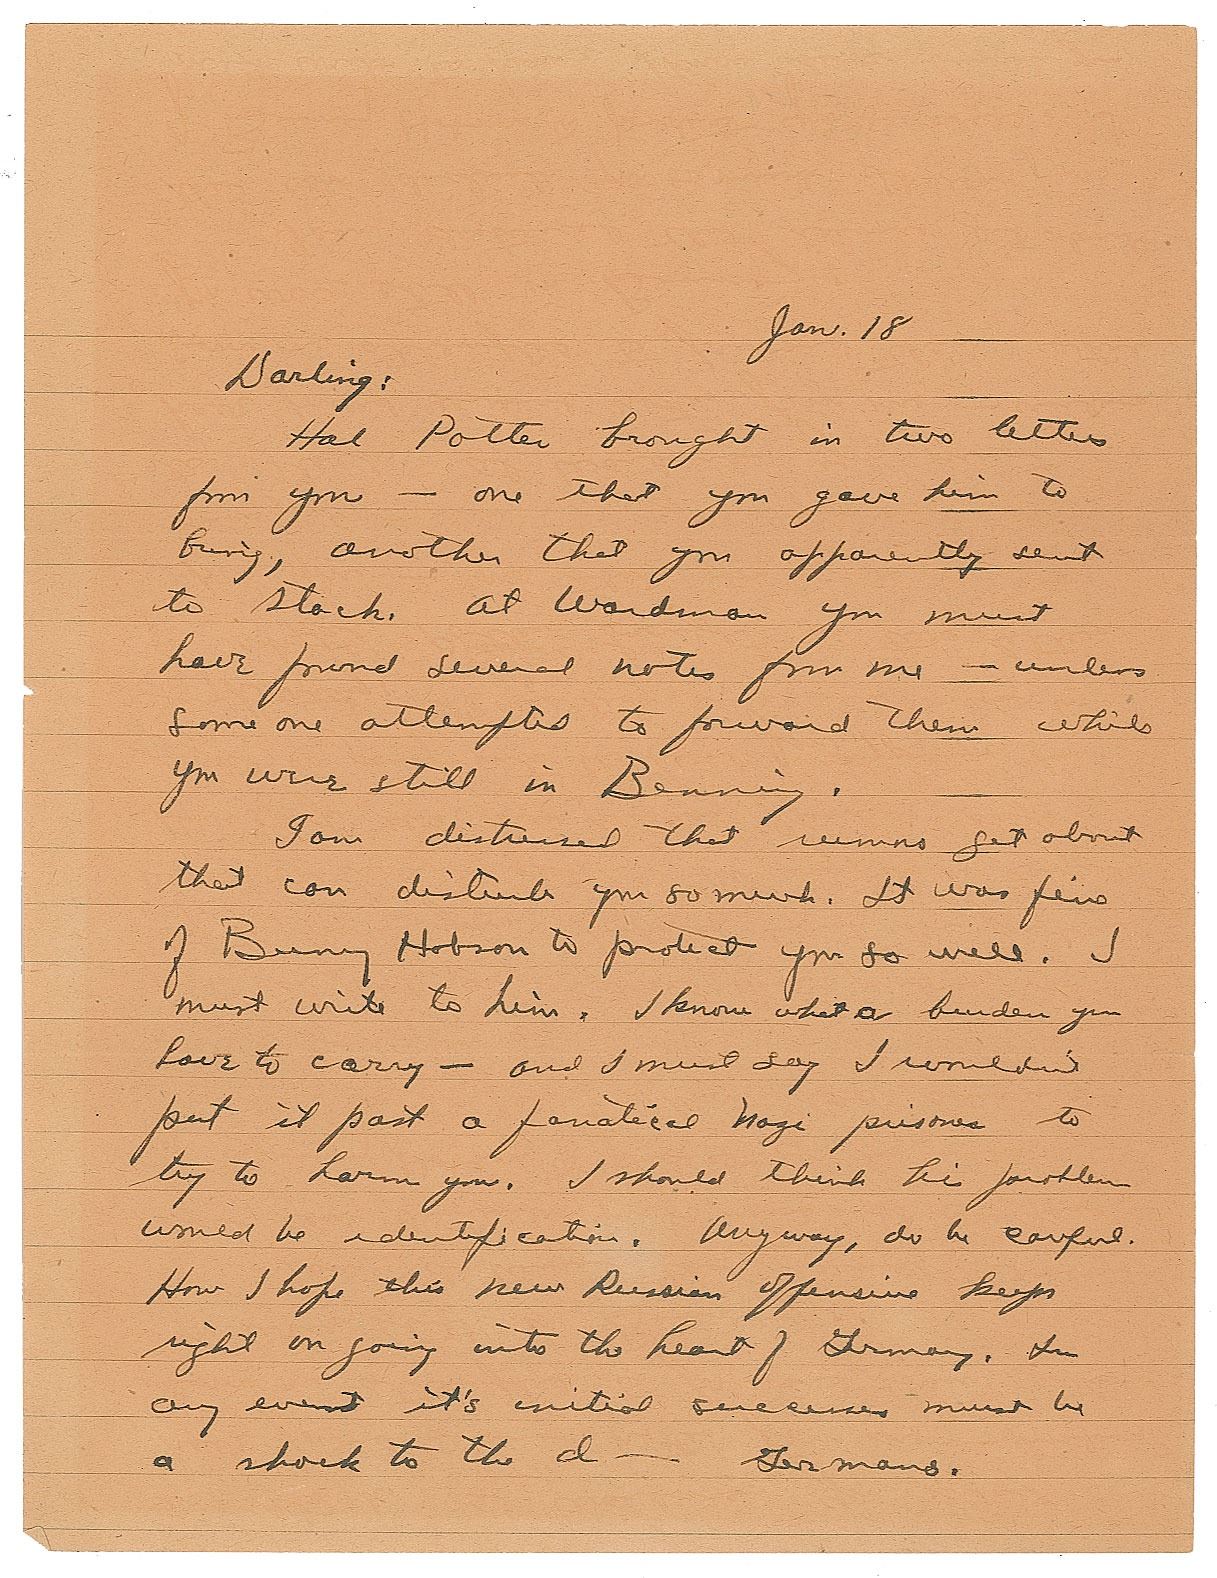 Jan. 18
Darling:
Hal Potter brought in two letters
from you — one that you gave him to
bring, another that you apparently sent
to Stack. At Wardman you must
have found several notes from me — unless
some one attempted to forward them while
you were still in Benning.
I am distressed that rumors get about
that can disturb you so much. It was fine
of Bunny Hobson to protect you so well. I
must write to him. I know what a burden you
have to carry — and I must say I wouldn't
put it past a fanatical Nazi prisoner to
try to harm you. I should think his problem
would be identification. Anyway, do be careful.
How I hope this new Russian offensive keeps
right on going into the heart of Germany. In
any event it's initial successes must be
a shock to the d— Germans.